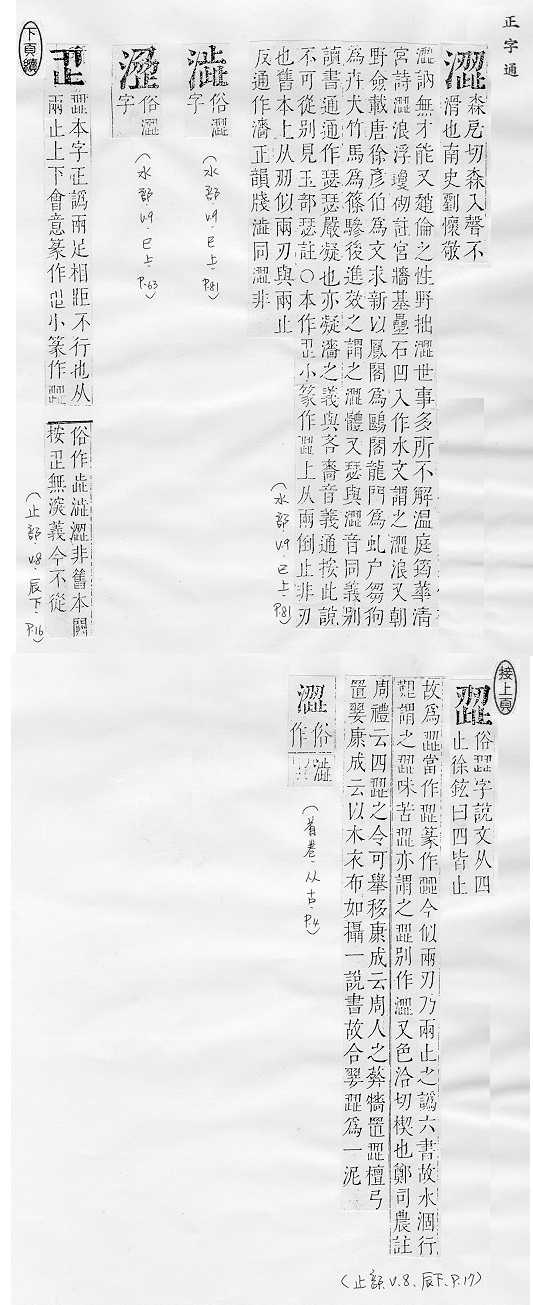 正字通
澀
森㞕切森入聲不
滑也南史劉懷敬
澀訥無才能又趙倫之性野拙澀世事多所不解温庭筠華清
宮詩澀浪浮瓊砌註宮牆基疊石凹入作水文謂之澀浪又朝
野僉載唐徐彦伯為文求新以鳳閣為鷗閣龍門為虬户芻狗
為卉犬竹馬為篠驂後進效之謂之澀體又瑟與澀音同義别
讀書通通作瑟瑟嚴凝也亦凝濇之義與吝嗇音義通按此説
不可從别見玉部瑟註○本作歰小篆作歰上从兩倒止非刃
也舊本上从刕似兩刃與兩止
反通作濇正韻牋澁同澀非
(水部 V9.巳上.P81)
澁
俗澀
字
(水部 V9.巳上.P81)
澀
俗澀
字
(水部 V9.巳上.P.63)
下頁續
歰本字正譌兩足相距不行也从
兩止上下會意篆作小篆作歰
俗作歮澁澀非舊本闕
按無澁義今不從
(止部 V8.辰下.P.16)
接上頁
歰
俗歰字説文从四
止徐鉉曰四皆止
故為歰當作歰篆作歰今似兩刃乃兩止之譌六書故水涸行
謂之歰味苦歰亦謂之歰别作澀又色洽切楔也鄭司農註
周禮云四歰之令可舉移康成云周人之葬牆置歰檀弓
置翣康成云以木衣布如攝一説書故合翣歰為一泥
澀
俗澁
作
(首卷.从古.P.4)
(止部.V.8.辰下.P.17)